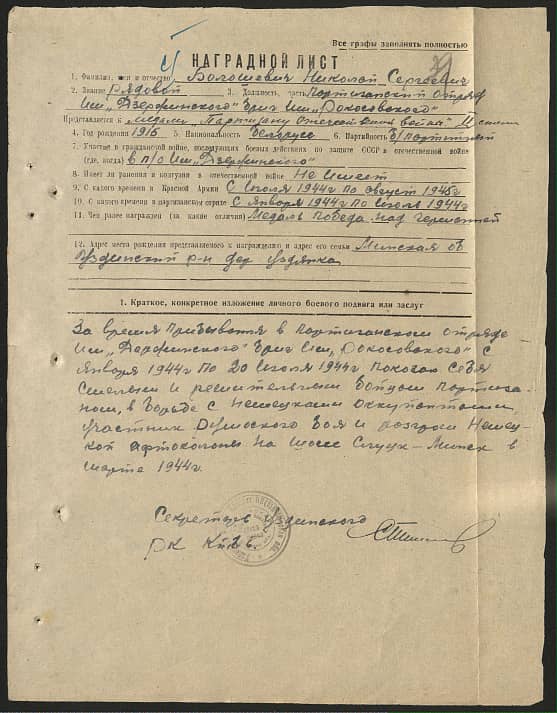 Все графы заполнять полностью
НАГРАДНОЙ ЛИСТ
1. Фамилия, имя и отчество Волошевич Николай Сергеевич
2. Звание Рядовой 3. Должность, часть Портизанский Отряд
Им. "Дзержинского" Бриг Им. "Рокосовского"
Представляется к медали "Партизану Отечественной войны"
4. Год рождения 1916 5. Национальность Беларус 6. Партийность Б/портийный
7. Участие в гражданской войне, последующих боевых действиях по защите СССР в отечественной войне
(где, когда) в п/о Им. "Дзержинского"
8. Имеет ли ранения и контузии в отечественной войне Не имеет
9. С какого времени в Красной Армии С Июля 1944г по Август 1945г
10. С какого времени в партизанском отряде С Января 1944г по Июль 1944г
11. Чем ранее награжден (за какие отличия) Медаль Победа над Германией
12. Адрес места рождения представляемого к награждению и адрес его семьи Минская об
Узденский р-н дер Узлянка
1. Краткое, конкретное изложение личного боевого подвига или заслуг
За время прибывания в портизанском отряде
Им. "Дзержинского" Бриг Им. "Рокосовского" с
Января 1944г по 20 Июля 1944г показал себя
смелым и решительным бойцом портиза-
ном, в борьбе с немецкими оккупантами,
участник боя и разгром Немец-
кой автоколоны на шосе Слуцк-Минск в
марте 1944г.
Секретарь Узденского
РК КП/б/Б.